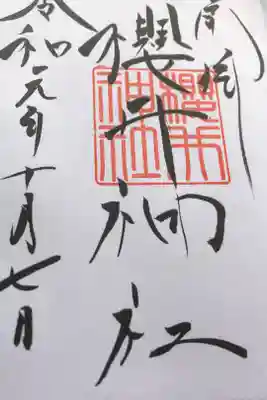 櫻井神社
令和元年十月七日
櫻井
神社